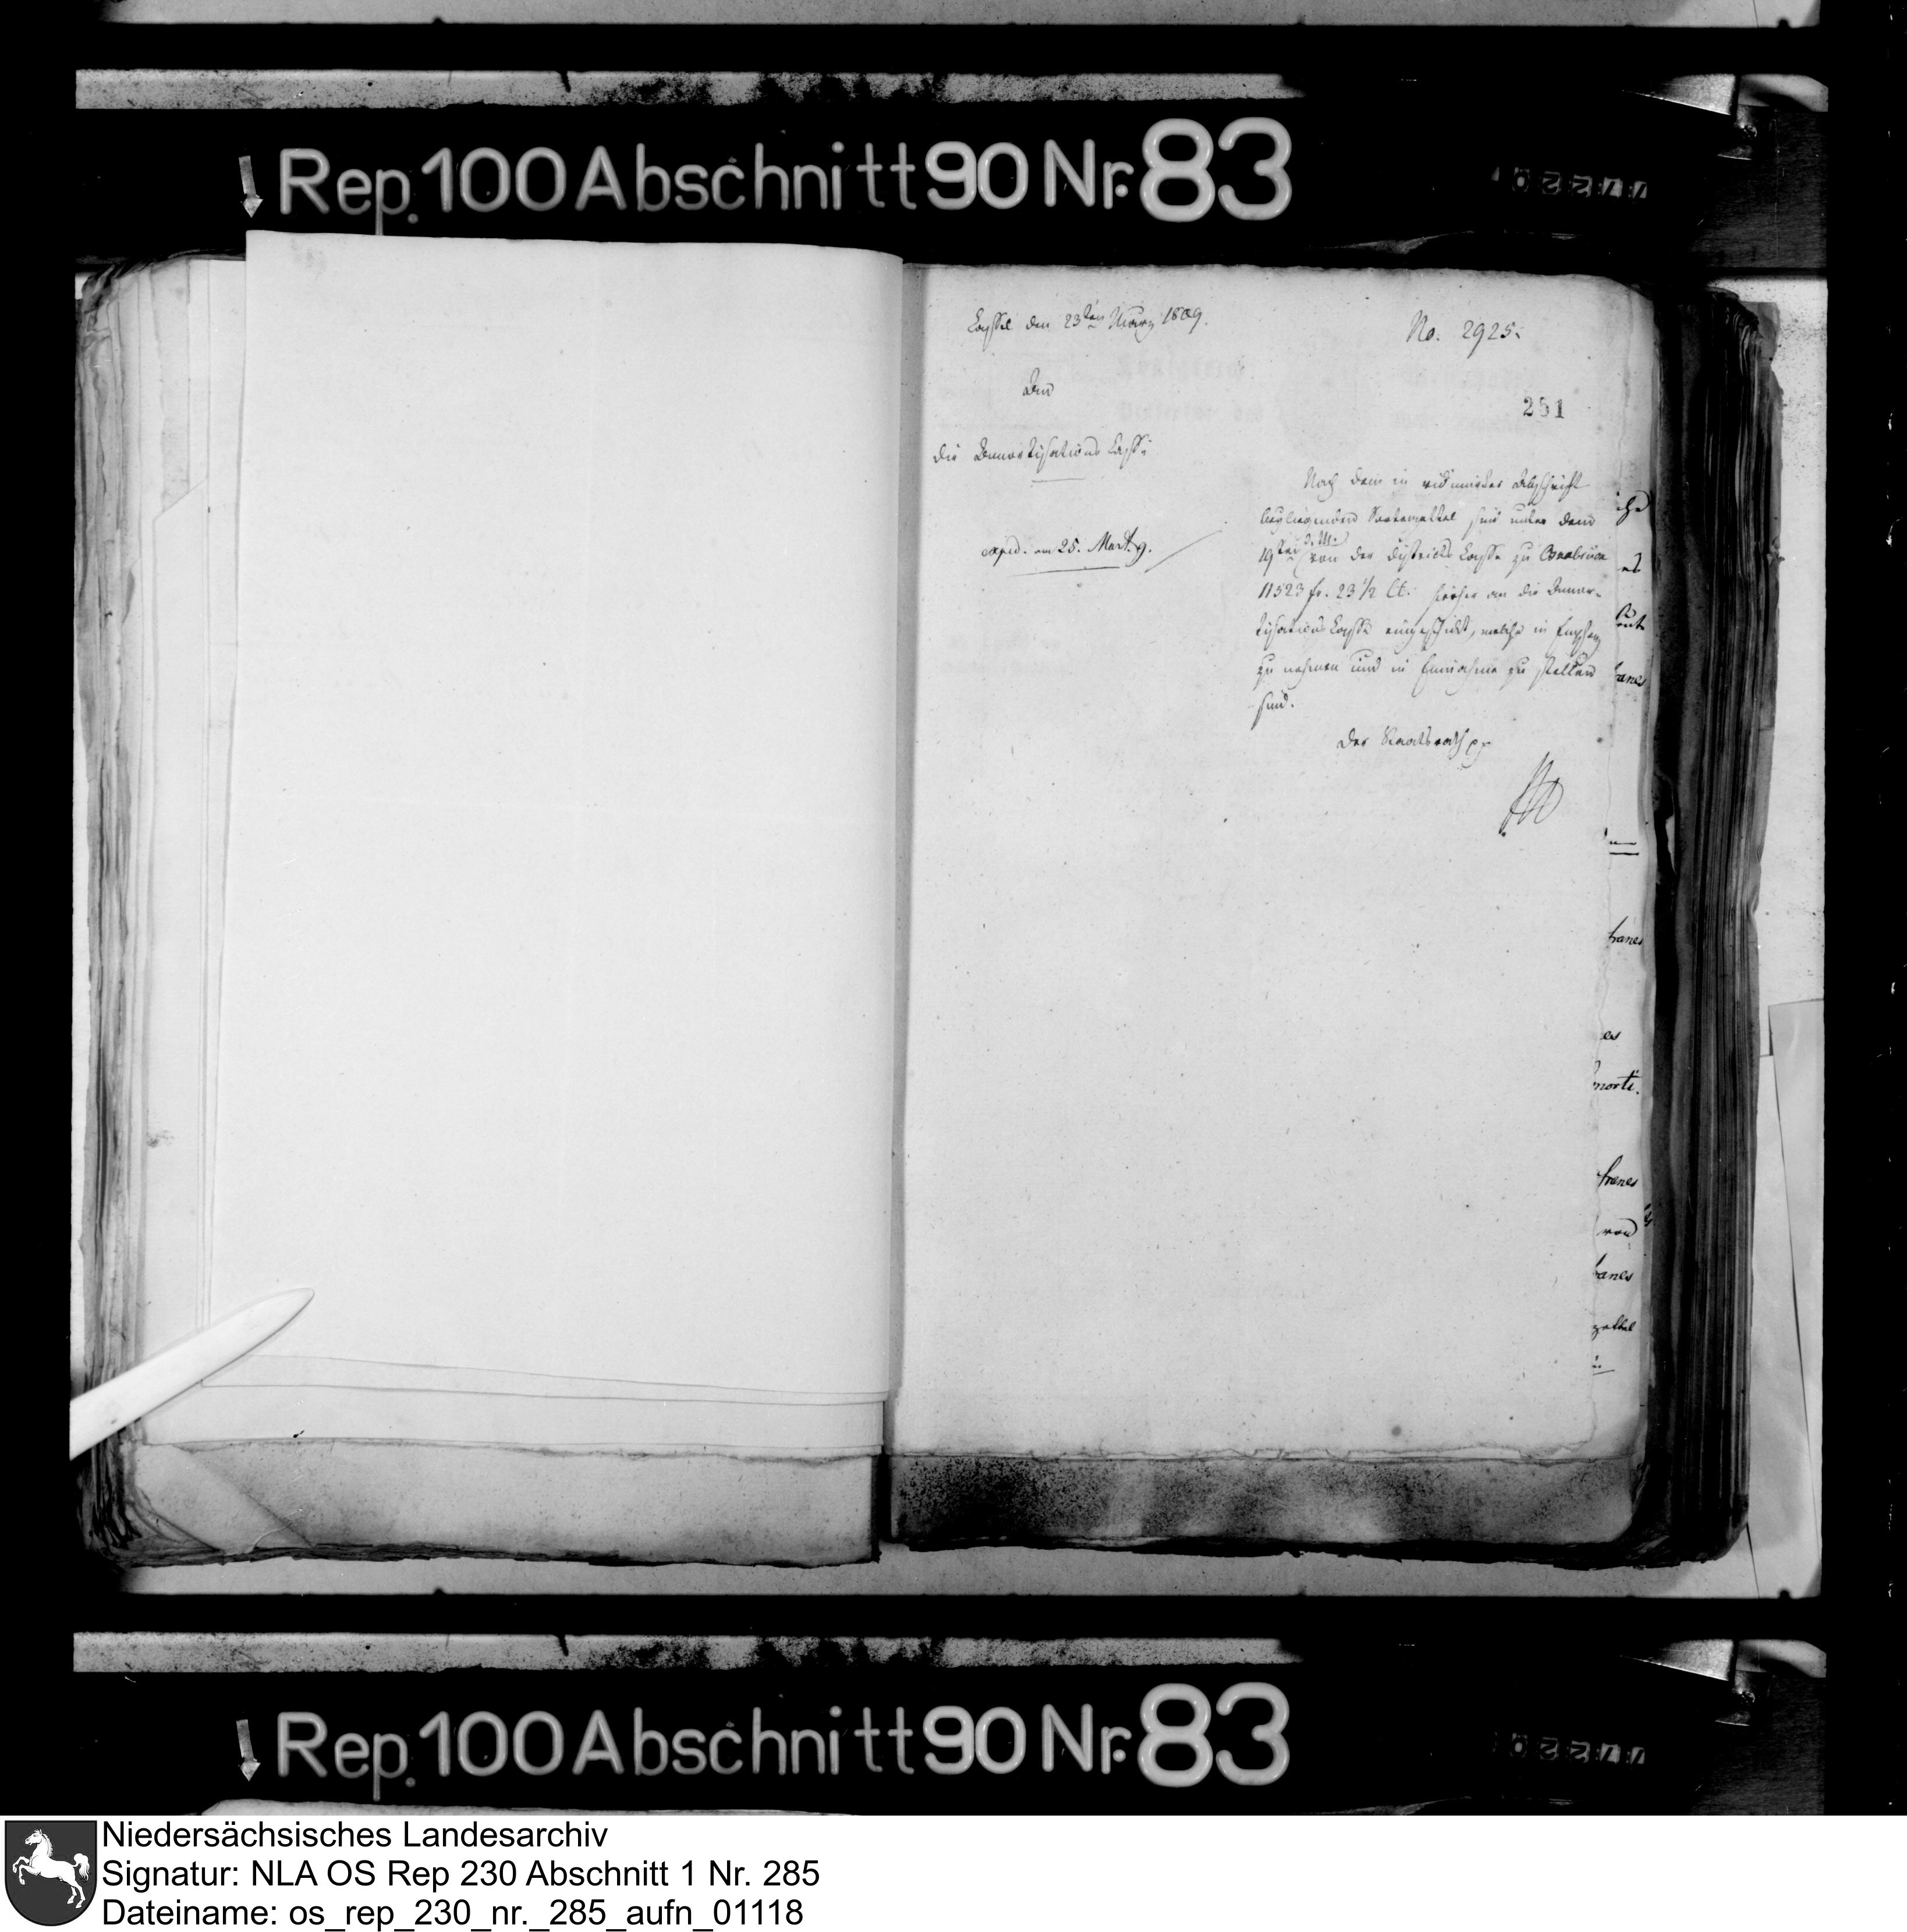 Rep. 100 Abschnitt 90 Nr. 83
Cassel den 23ten März 1809.
No. 2925.
An
251
die Amortisations Casse
Nach dem in vidimirter Abschrift
beyliegenden Sortenzettel sind unter dem
exped. am 25. Mart. 9.
19ten d. M. von der Districts Casse zu Osnabrück
11523 fr. 23 1/2 Ct. hierher an die Amor-
tisations Casse eingeschickt, welche in Empfang
zu nehmen und in Einnahme zu stellen
sind.
Der Staatsrath pp
es
morti.
francs
von
zettel
Rep. 100 Abschnitt 90 Nr. 83
Niedersächsisches Landesarchiv
Signatur: NLA OS Rep 230 Abschnitt 1 Nr. 285
Dateiname: os_rep_230_nr._285_aufn_01118